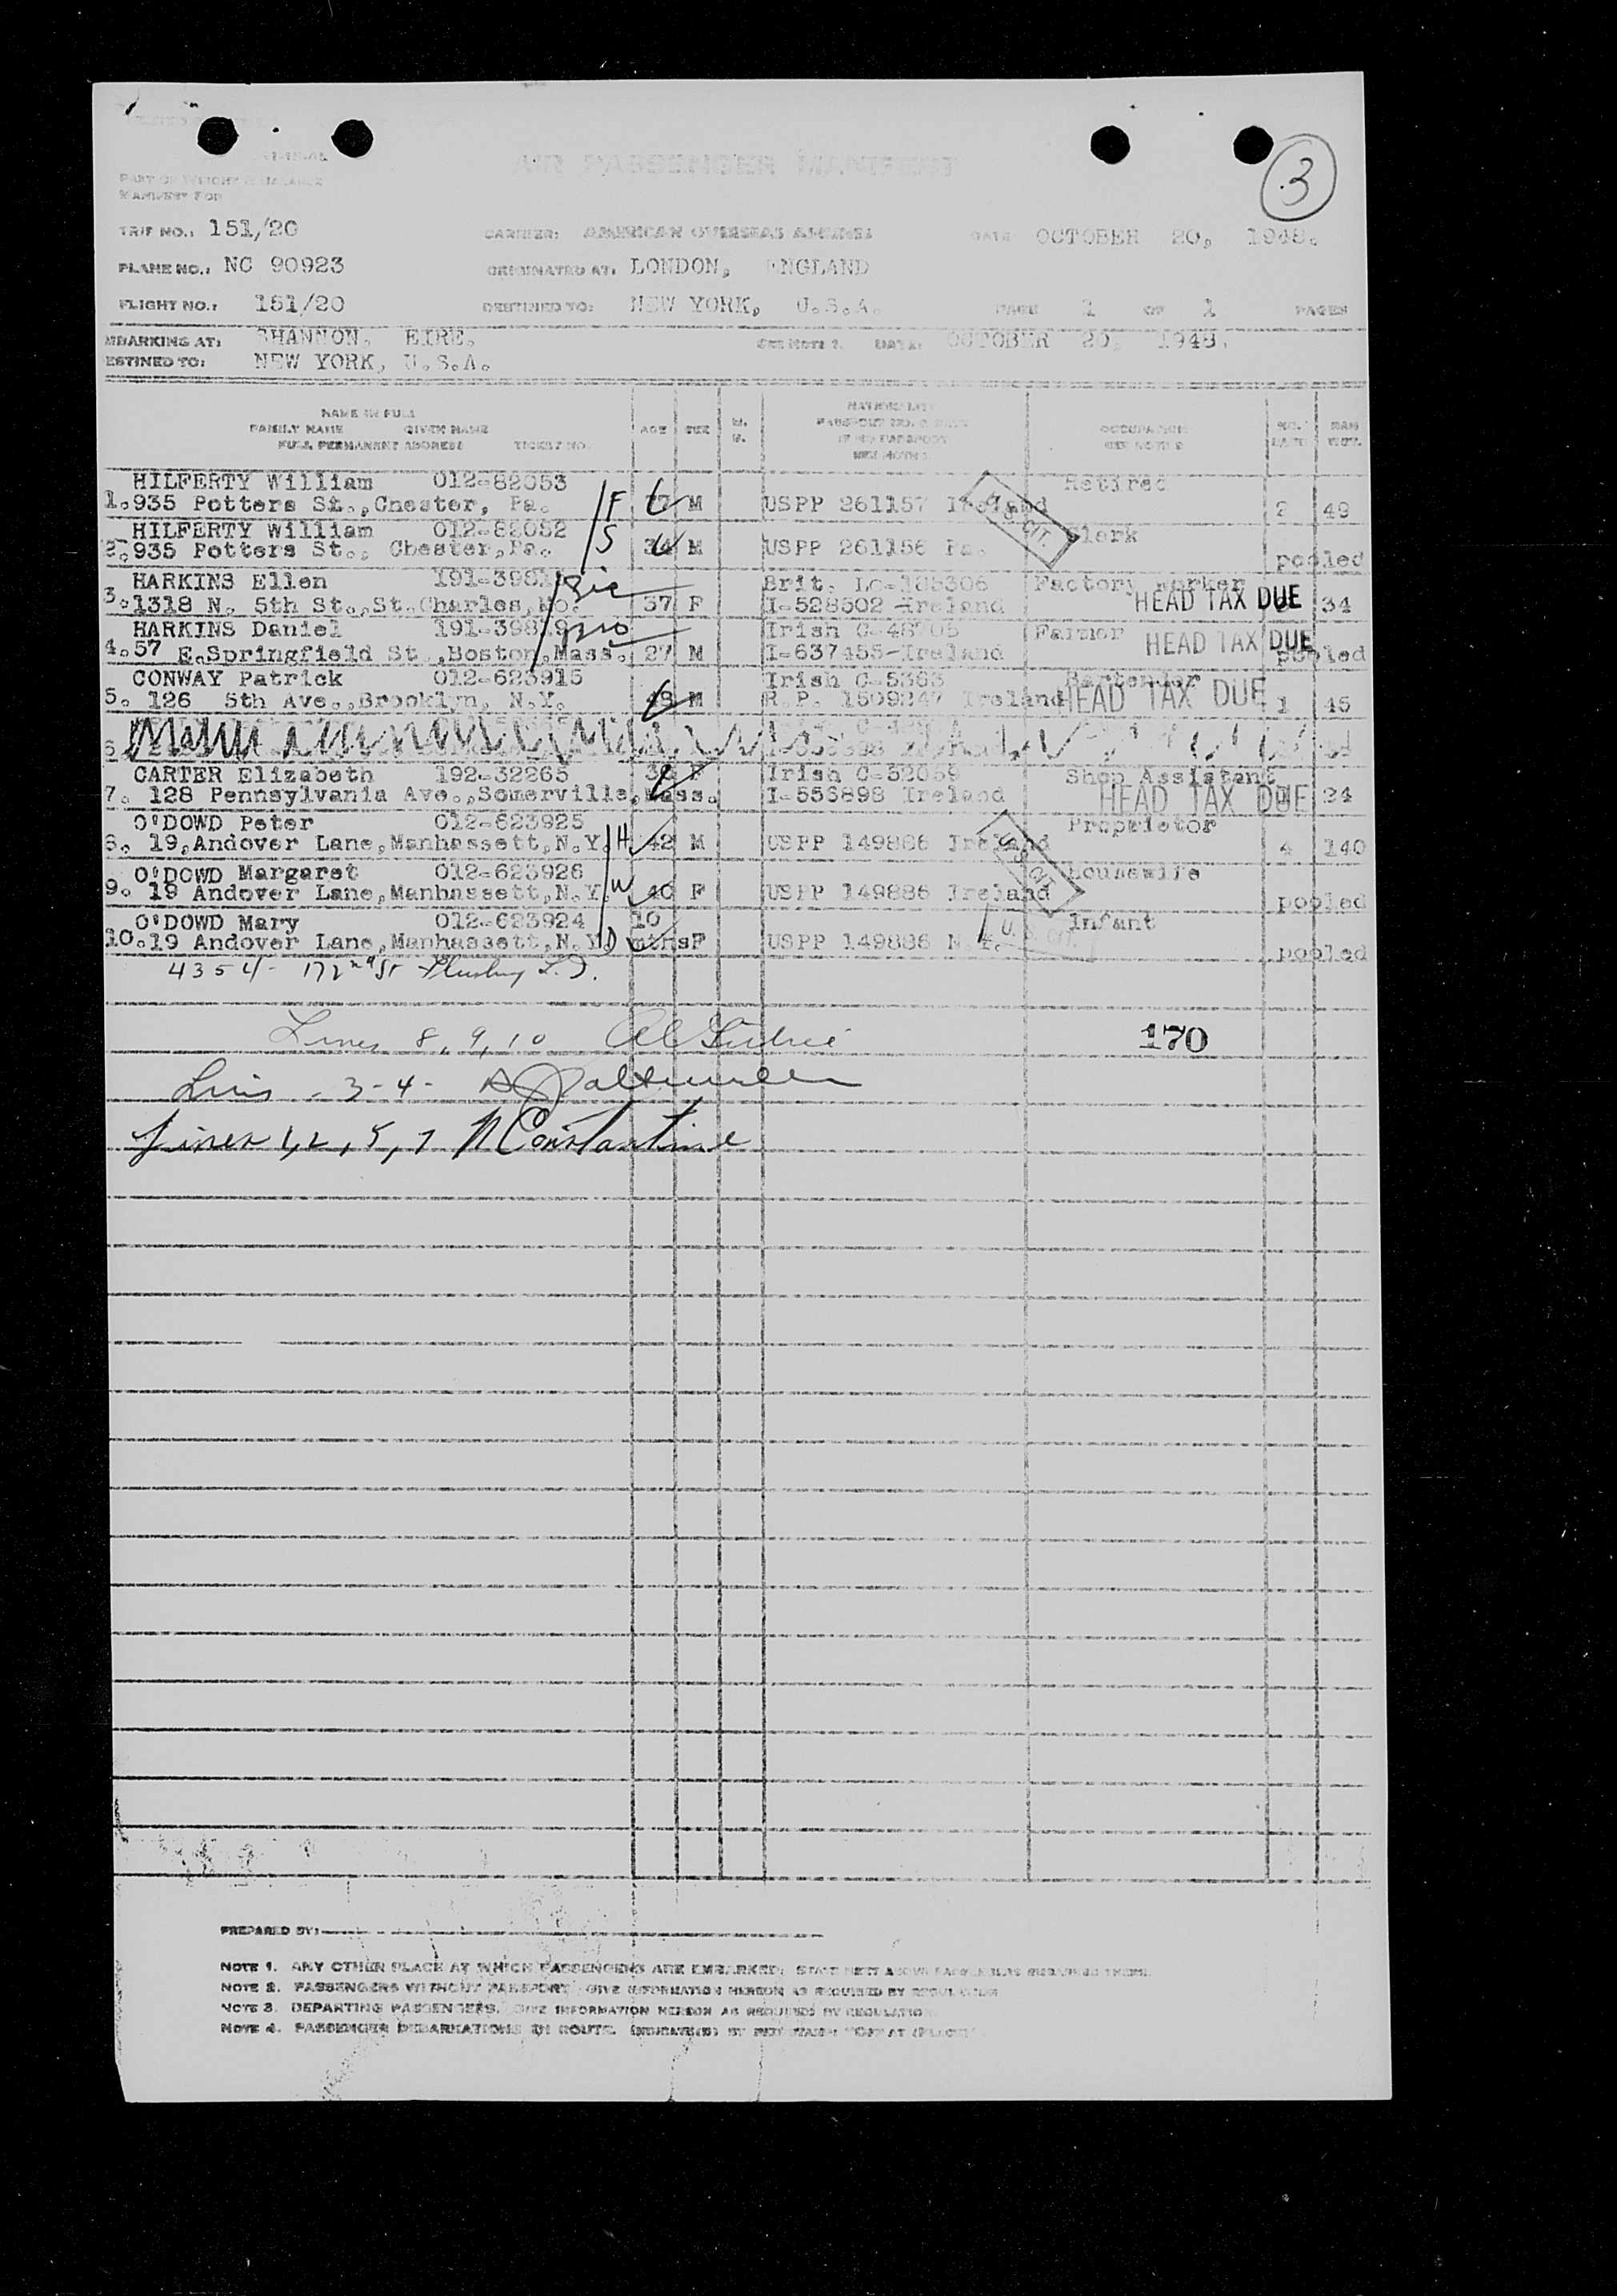 AIR PASSENGER MANIFEST
3
PART OF WEIGHT & BALANCE
MANIFEST FOR
TRIP NO.: 151/20 CARRIER: AMERICAN OVERSEAS AIRLINES DATE OCTOBER 20, 1948.
PLANE NO.: NC 90923 ORIGINATED AT: LONDON, ENGLAND
FLIGHT NO.: 151/20 DESTINED TO: NEW YORK, U.S.A. PAGE 1 OF 1 PAGES
MBARKING AT: SHANNON, EIRE. SEE NOTE 1. DATE: OCTOBER 20, 1948.
ESTINED TO: NEW YORK, U.S.A.
NAME IN FULL
FAMILY NAME GIVEN NAME AGE SEX OCCUPATION
FULL PERMANENT ADDRESS TICKET NO.
HILFERTY William 012-82053 Retired
1. 935 Potters St., Chester, Pa. F M USPP 261157 Ireland 2 49
HILFERTY William 012-82052 Clerk
2. 935 Potters St., Chester, Pa. S 34 M USPP 261156 Pa. pooled
U.S. CIT.
HARKINS Ellen Brit. Factory Worker
3. 1318 N. 5th St., St. Charles, Mo. 37 F I-528502 Ireland HEAD TAX DUE 34
HARKINS Daniel Irish Farmer
4. 57 E. Springfield St., Boston, Mass. 27 M I-637455-Ireland HEAD TAX DUE pooled
CONWAY Patrick 012-623915 Irish C-5363 Bartender
5. 126 5th Ave., Brooklyn, N.Y. M R.P. 1509247 Ireland HEAD TAX DUE 1 45
6
CARTER Elizabeth 192-32265 F Irish C-52059 Shop Assistant
7. 128 Pennsylvania Ave., Somerville, Mass. I-556898 Ireland HEAD TAX DUE 24
O'DOWD Peter 012-623925 Proprietor
8. 19, Andover Lane, Manhassett, N.Y. H 42 M USPP 149886 Ireland 4 140
O'DOWD Margaret 012-623926 Housewife
9. 19 Andover Lane, Manhassett, N.Y. W 40 F USPP 149886 Ireland pooled
U.S. CIT.
O'DOWD Mary 012-623924 10 Infant
10. 19 Andover Lane, Manhassett, N.Y. D mths F USPP 149886 N.Y. U.S. CIT. pooled
4354- 172nd St Flushing L.I.
Lines 8, 9, 10
170
Lines - 3-4-
Lines 1, 2, 5, 7 N Constantine
PREPARED BY:
NOTE 1. ANY OTHER PLACE AT WHICH PASSENGERS ARE EMBARKED:
NOTE 2. PASSENGERS WITHOUT PASSPORT GIVE INFORMATION HEREON AS REQUIRED BY REGULATION
NOTE 3. DEPARTING PASSENGERS. GIVE INFORMATION HEREON AS REQUIRED BY REGULATION
NOTE 4. PASSENGER DEBARKATIONS EN ROUTE.